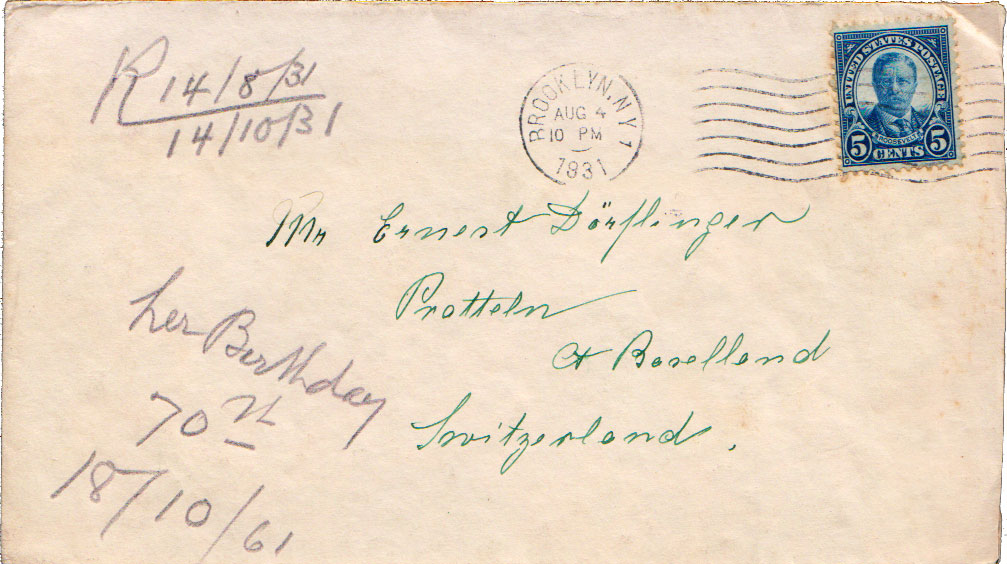 R 14/8/31
14/10/31
BROOKLYN, N.Y. 1
AUG 4
10 PM
1931
UNITED STATES POSTAGE
ROOSEVELT
5 CENTS 5
Mr Ernest Dörflinger
Pratteln
Ct Baselland
Switzerland.
her Birthday
70th
18/10/61